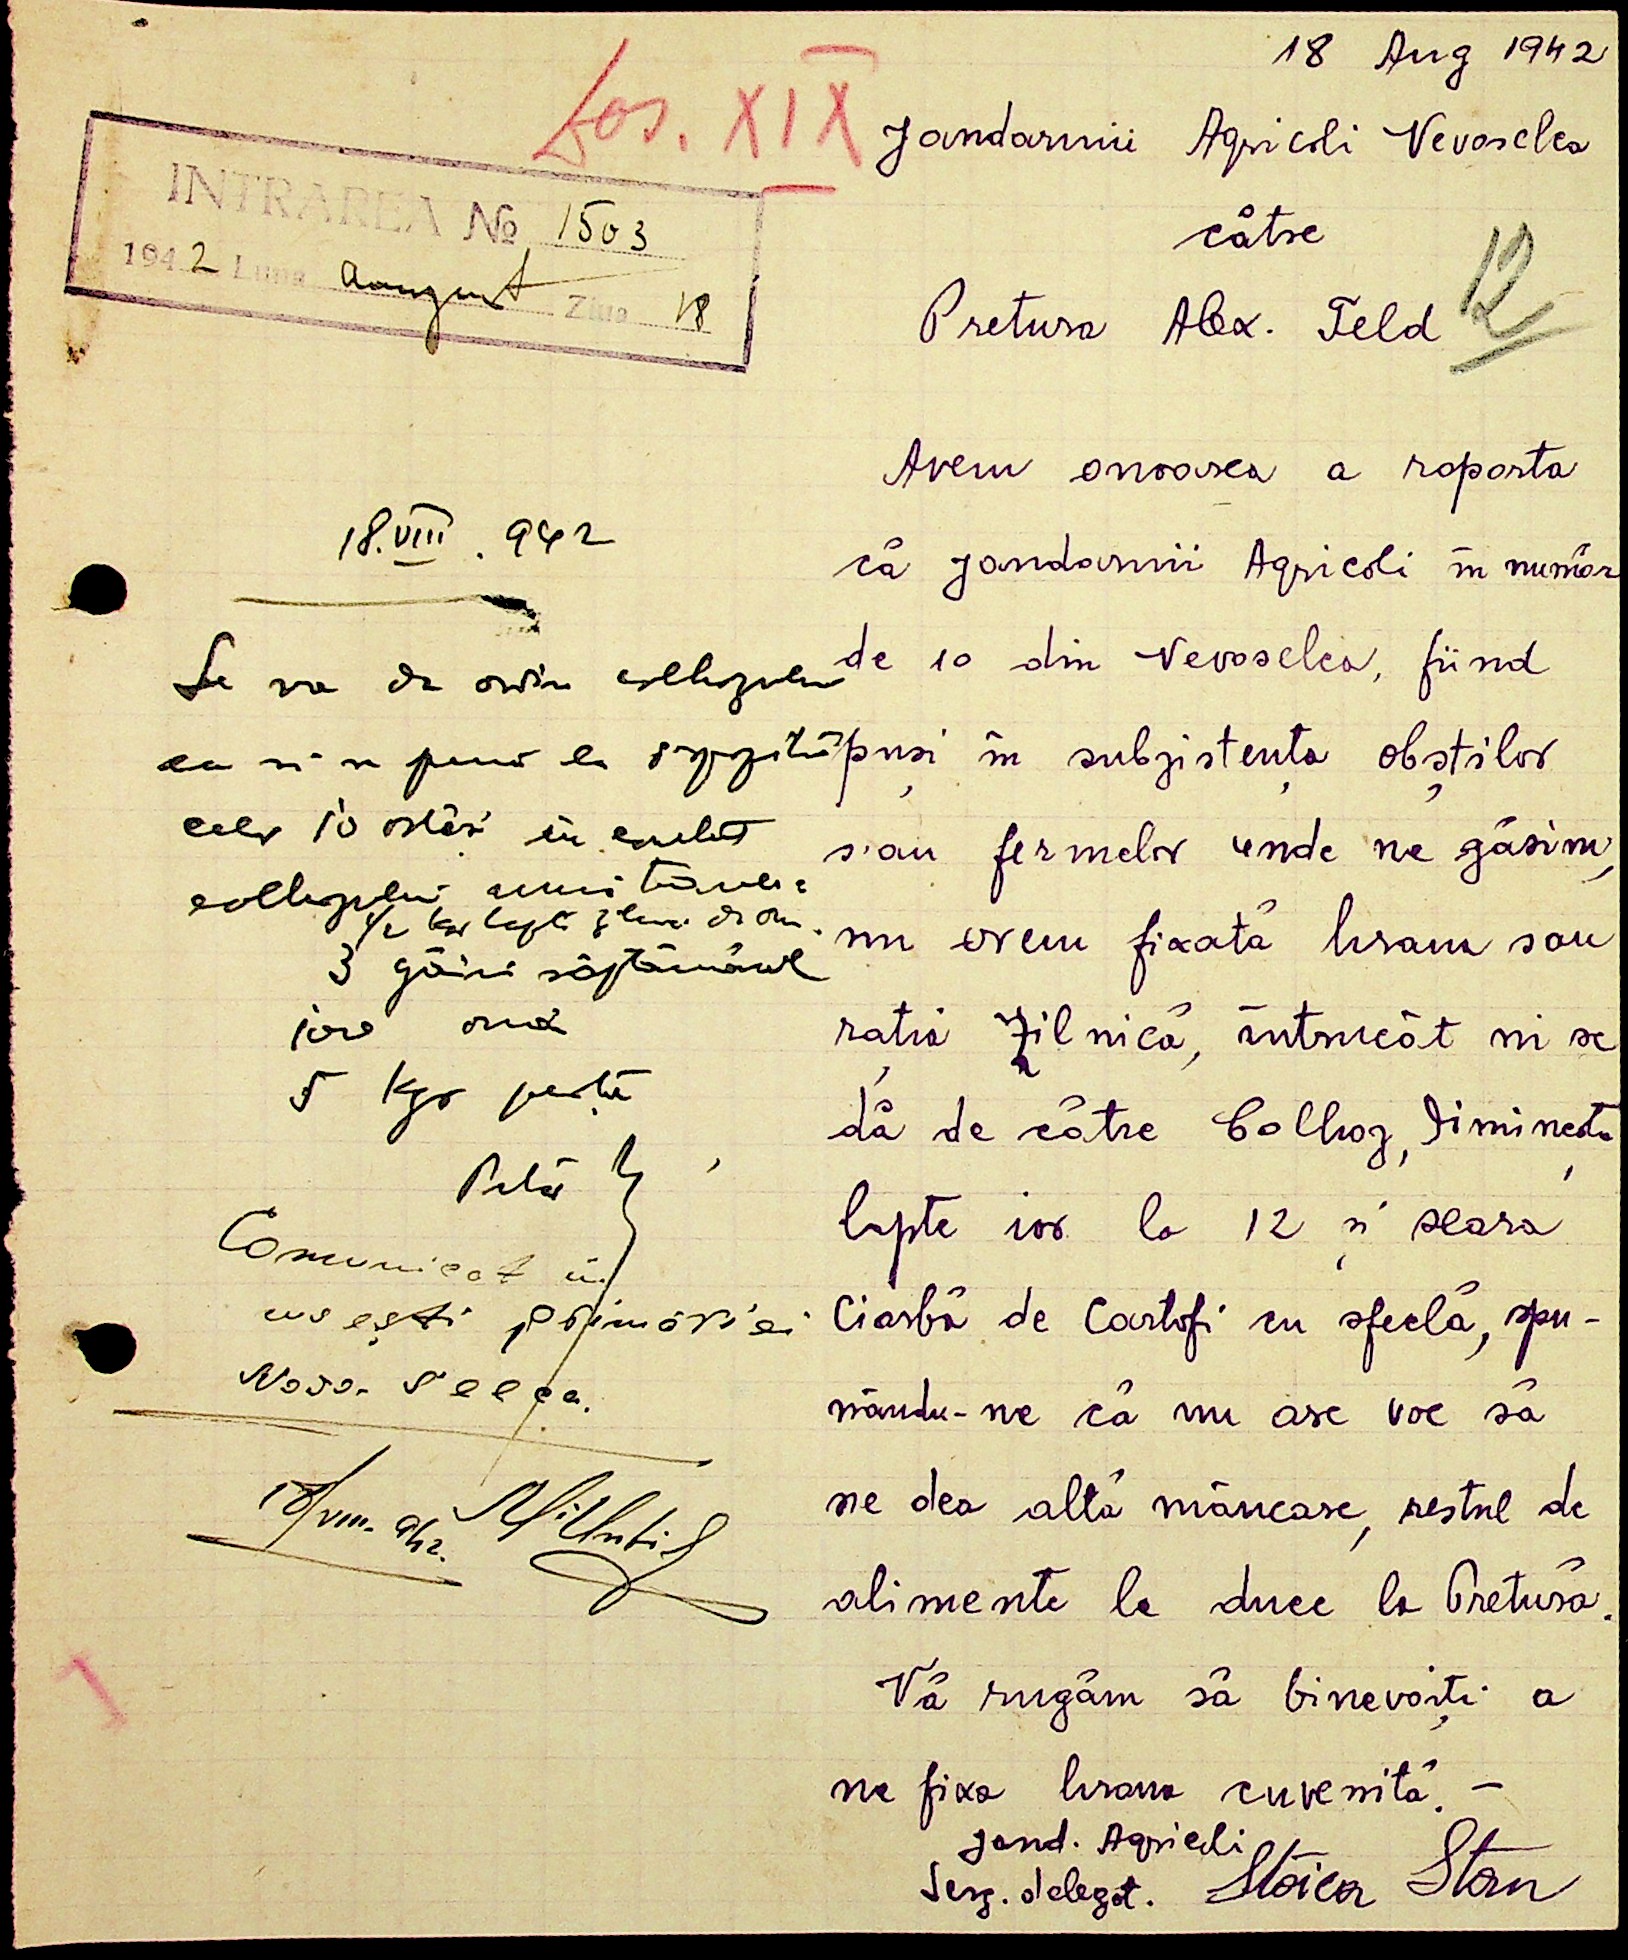 18 Aug 1942
Dos. XIX
Jandarmii Agricoli Nevoselca
către
Pretura Alex. Feld
12
INTRAREA No 1503
1942 Luna august Ziua 18
Avem onoarea a raporta
că Jandarmii Agricoli în număr
de 10 din Nevoselca, fiind
puși în subzistența obștilor
s'au fermelor unde ne găsim,
nu avem fixată hrana sau
rația Zilnică, întrucât ni se
dă de către Colhoz, Dimineața
lapte iar la 12 și seara
Ciorbă de Cartofi cu sfeclă, spu-
nându-ne că nu are voe să
ne dea altă mâncare, restul de
alimente le duce la Pretură.
Vă rugăm să binevoiți a
ne fixa hrana cuvenită. -
Jand. Agricoli
Serg. delegat. Stoica Stan
18.VIII.942
Se va da ordin colhozului
ca să se pună la dispoziția
celor 10 ostași în contul
colhozului
1/2 kgr lapte zilnic de om.
3 găini săptămânal
iar
5 Kgr pește
Pretor
Comunicat
primăriei
Novo-Selca.
18/VIII-942.